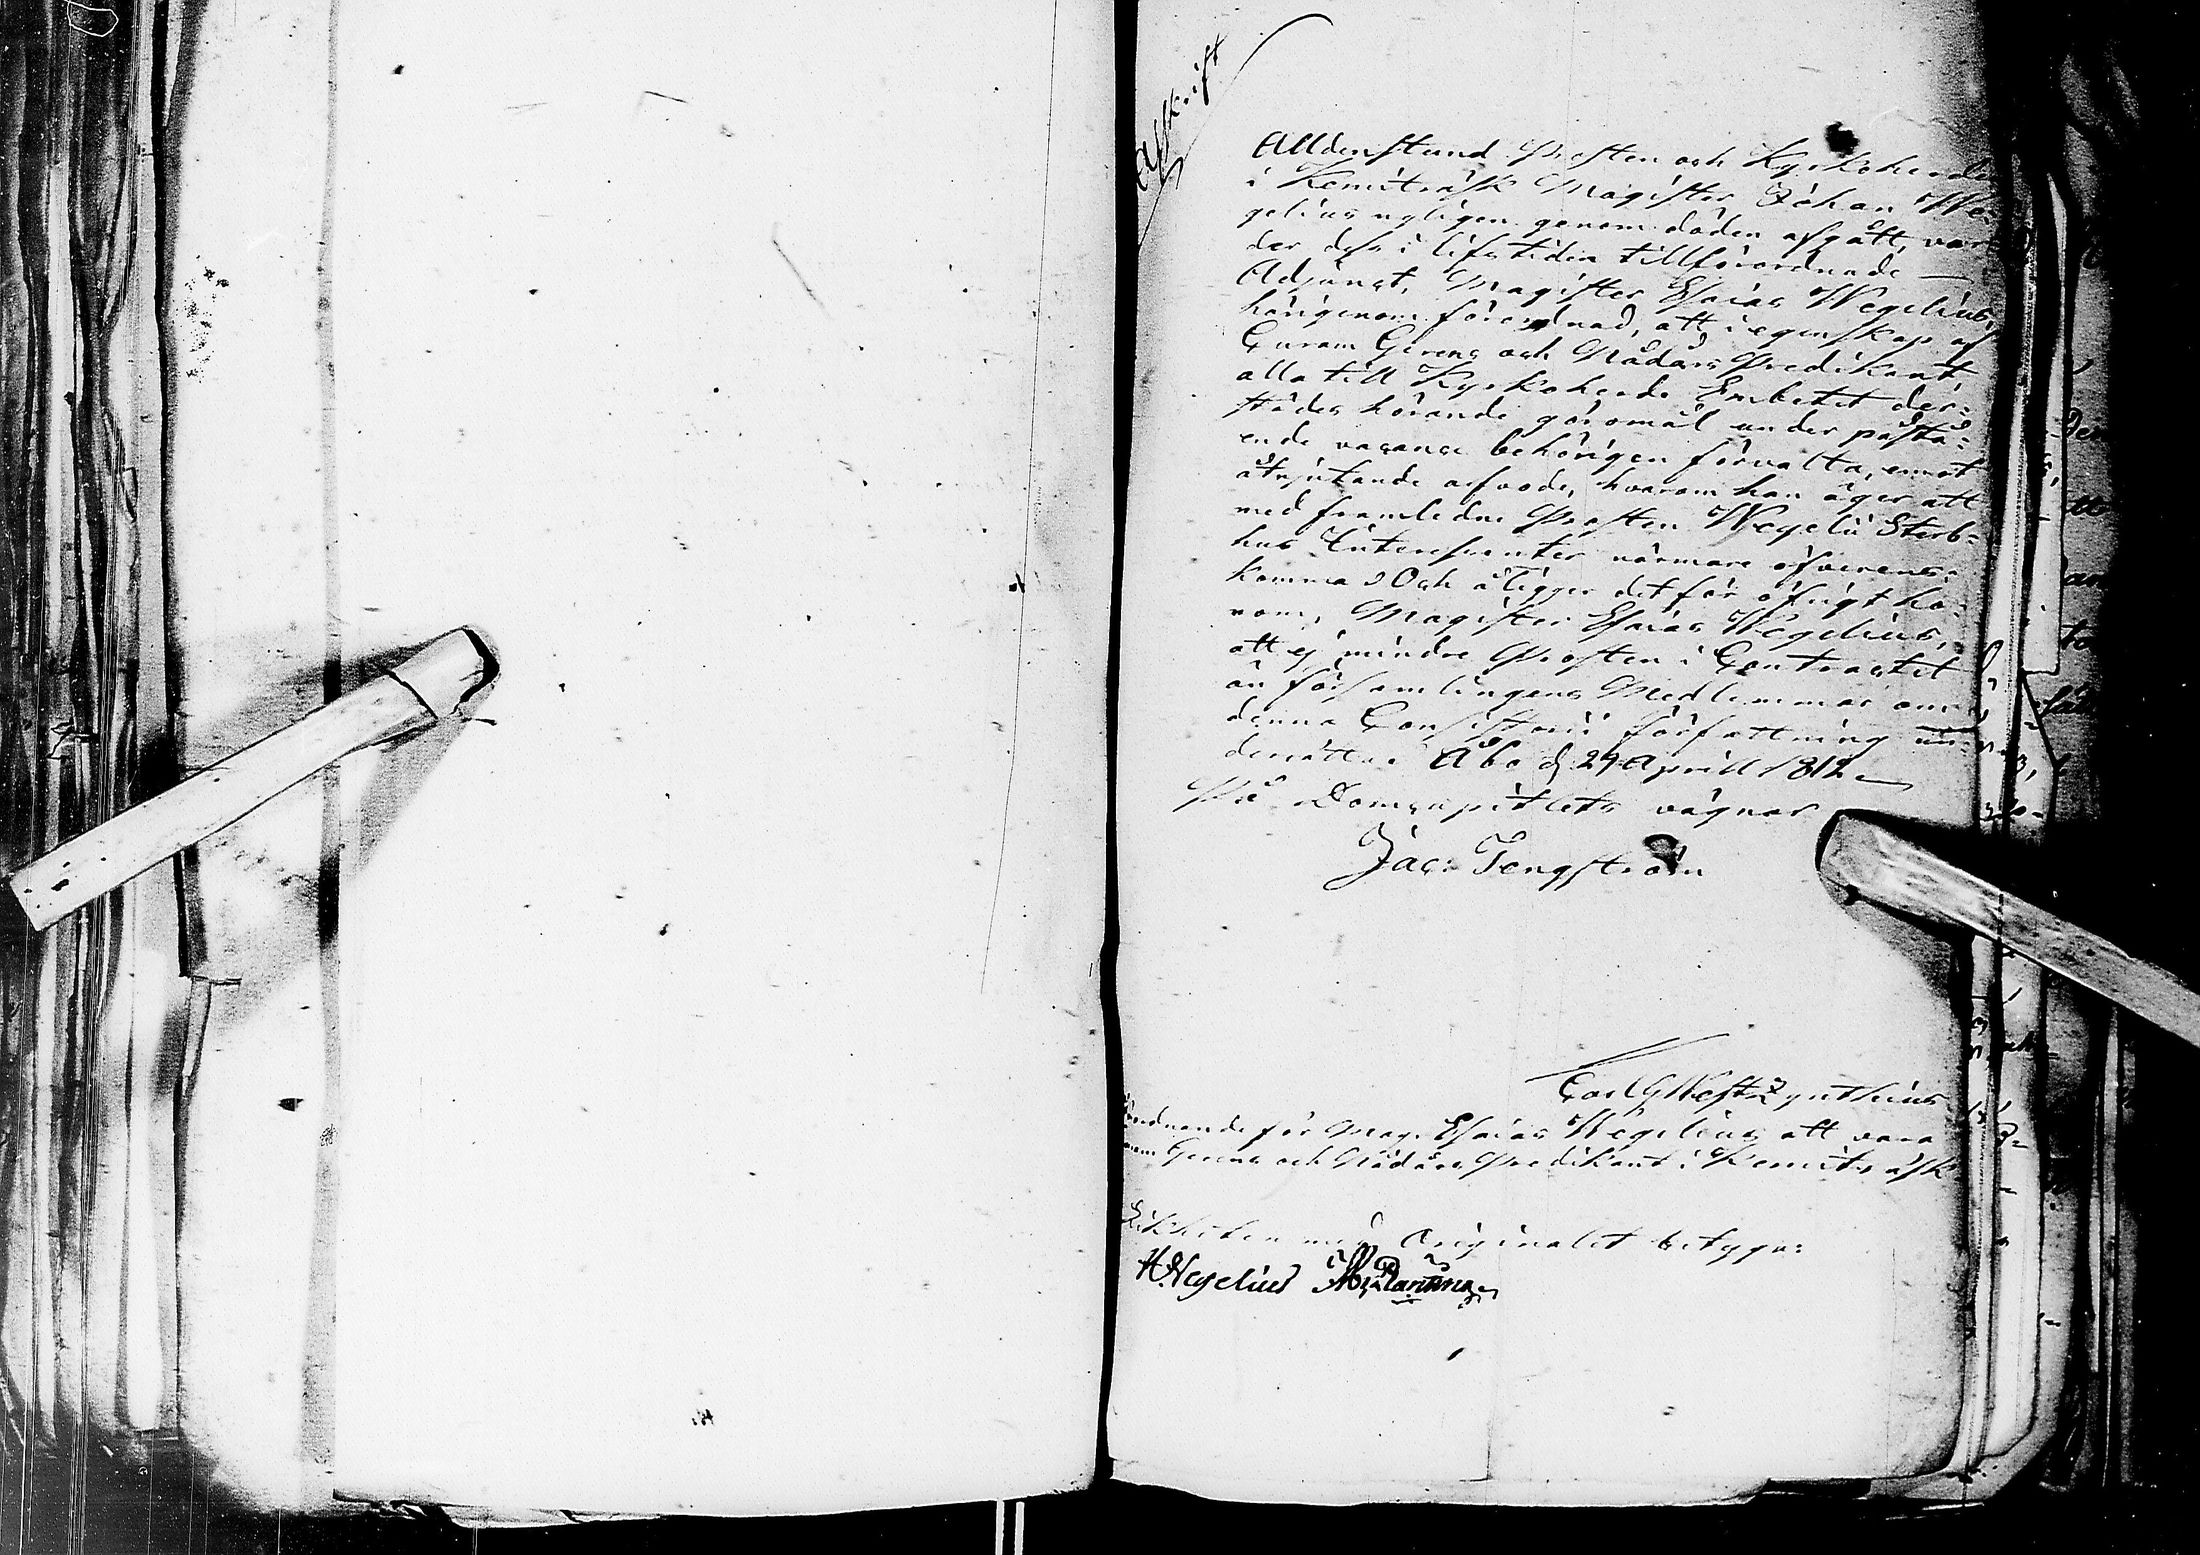 Afskrift
Alldenstund Prosten och Kyrkoherden
i Kemiträsk Magister Johan We-
gelius nyligen genom döden afgått, var-
der dess i lifstiden tillförordnade —
Adjunct, Magister Esaias Wegelius,
härigenom förordnad, att i egenskap af
Curam Gerens och Nådårs Predikant,
alla till Kyrkoherde Embetet der-
städes hörande göromål under påstå-
ende vacance behörigen förvalta, emot
åtnjutande arfvode, hvarom han äger att
med framledne Prosten Wegelii Sterb-
hus Interessenter närmare öfverens-
komma; Och åligger det för öfrigt ho-
nom, Magister Esaias Wegelius,
att ej mindre Prosten i Contractet
än församlingens Medlemmar om
denna Consistorii författning un-
derrätta. Åbo d. 29 April 1812.
På Domcapitlets vägnar
Jac: Tengström
Carl G West Zynthius
förordnande för Mag. Esaias Wegelius att vara
Gerens och Nådårs Predikant i Kemiträsk
Likheten med Originalet betyga:
H. Wegelius